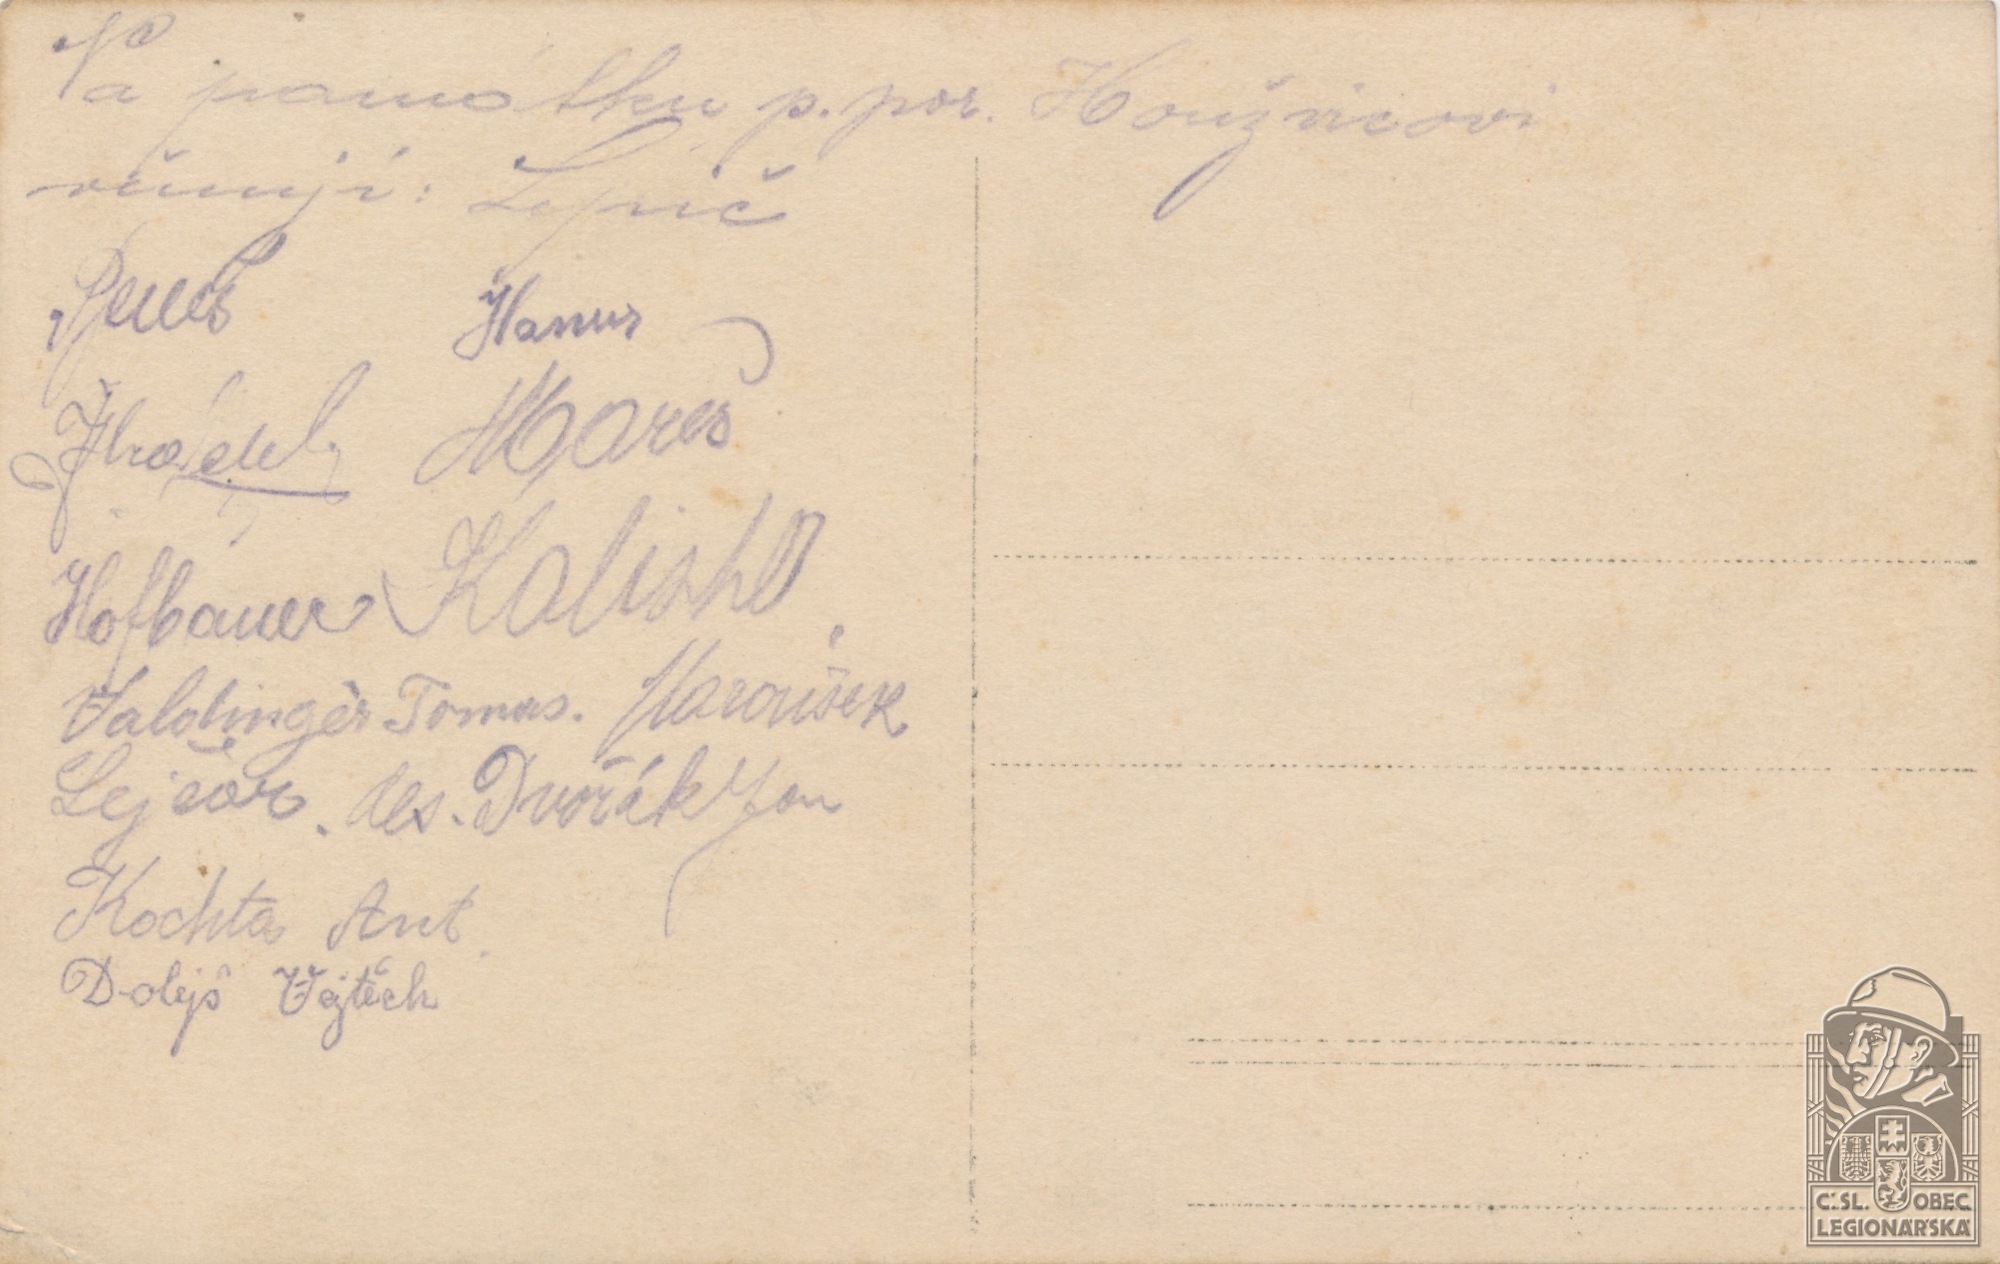 Na památku p. por. Houžvicovi
věnují: Lepič
Beneš Hanus
Hrádek Mareš
Hofbauer Kališ
Valdinger Tomas. Maroušek
Lejčar. des. Dvořák Jan
Kochta Ant.
Dolejš Vojtěch
Č.SL. OBEC
LEGIONÁŘSKÁ